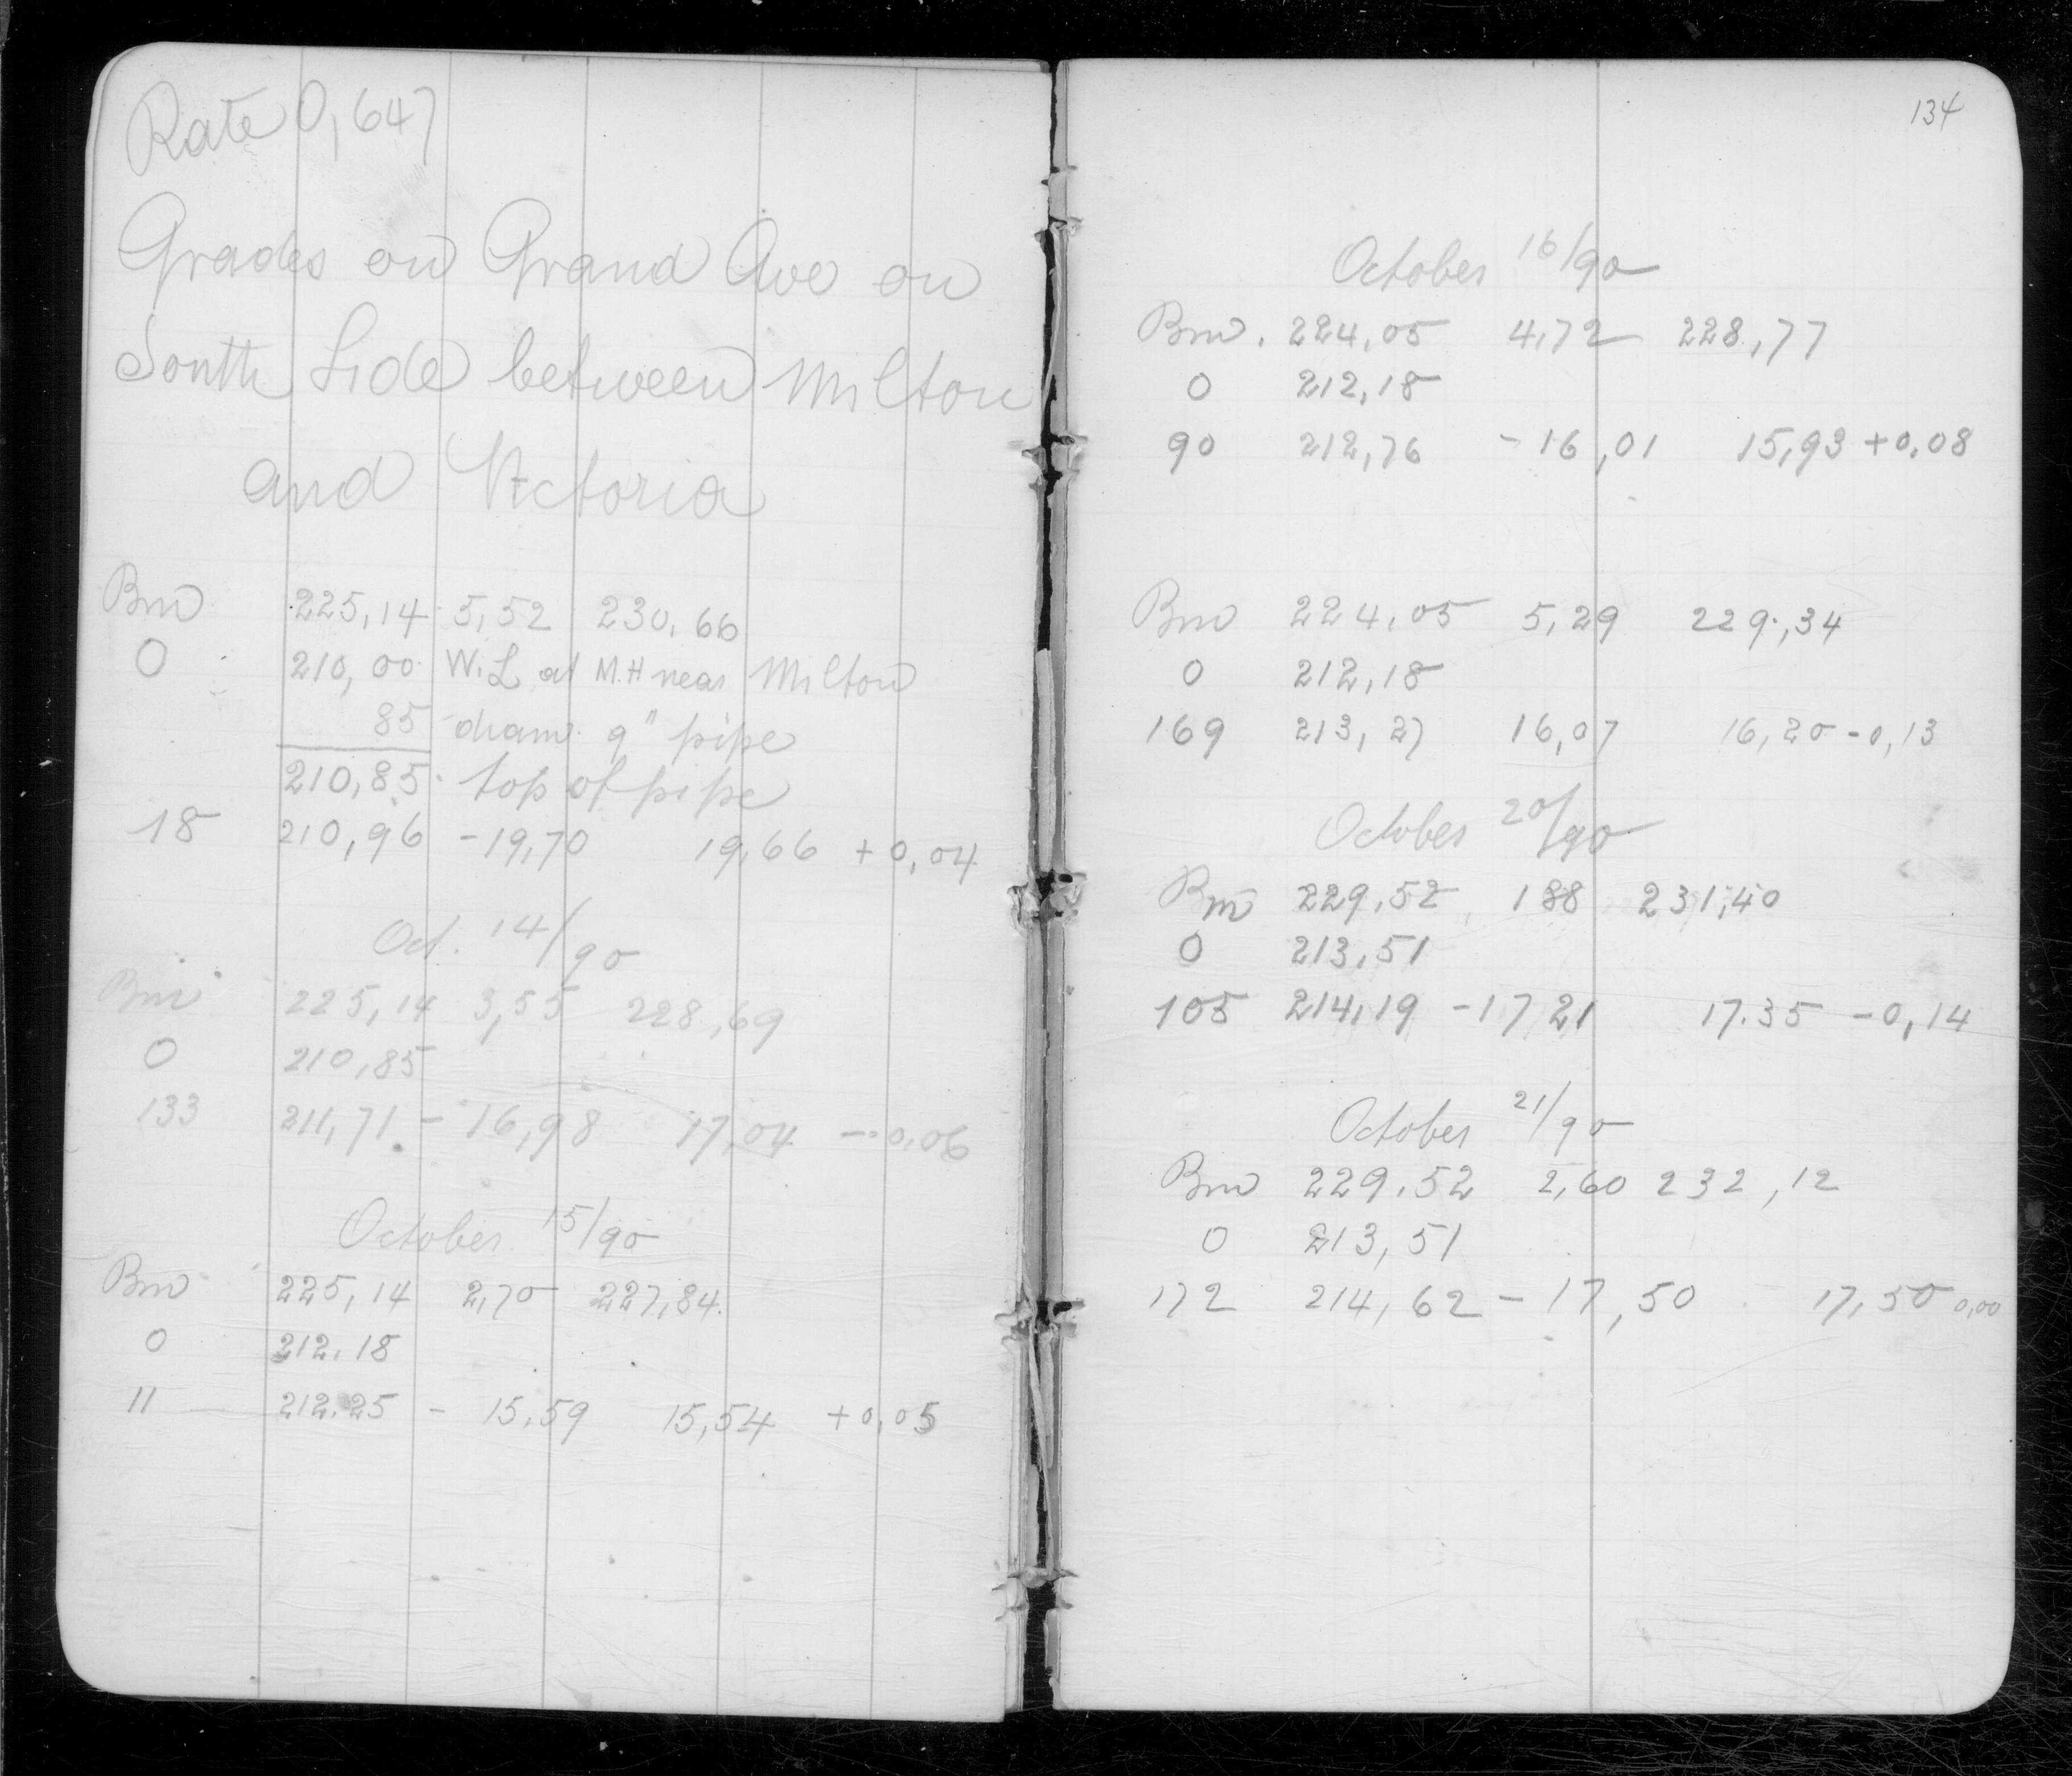 Rate 0,647
Grades on Grand Ave on
South Side between Milton
and Victoria
Bm 225,14 5,52 230,66
0 210,00 W.L at M.H near Milton
85 diam. 9" pipe
210,85 top of pipe
18 210,96 -19,70 19,66 +0,04
Oct. 14/90
Bm 225,14 3,55 228,69
0 210,85
133 211,71 - 16,98 17,04 -0,06
October 15/90
Bm 225,14 2,70 227,84
0 212,18
11 212,25 - 15,59 15,54 +0,05
134
October 16/90
Bm. 224,05 4,72 228,77
0 212,18
90 212,76 -16,01 15,93 +0,08
Bm 224,05 5,29 229,34
0 212,18
169 213,27 16,07 16,20 -0,13
October 20/90
Bm 229,52 188 231,40
0 213,51
105 214,19 -17 21 17.35 -0,14
October 21/90
Bm 229,52 2,60 232,12
0 213,51
172 214,62 - 17,50 17,50 0,00